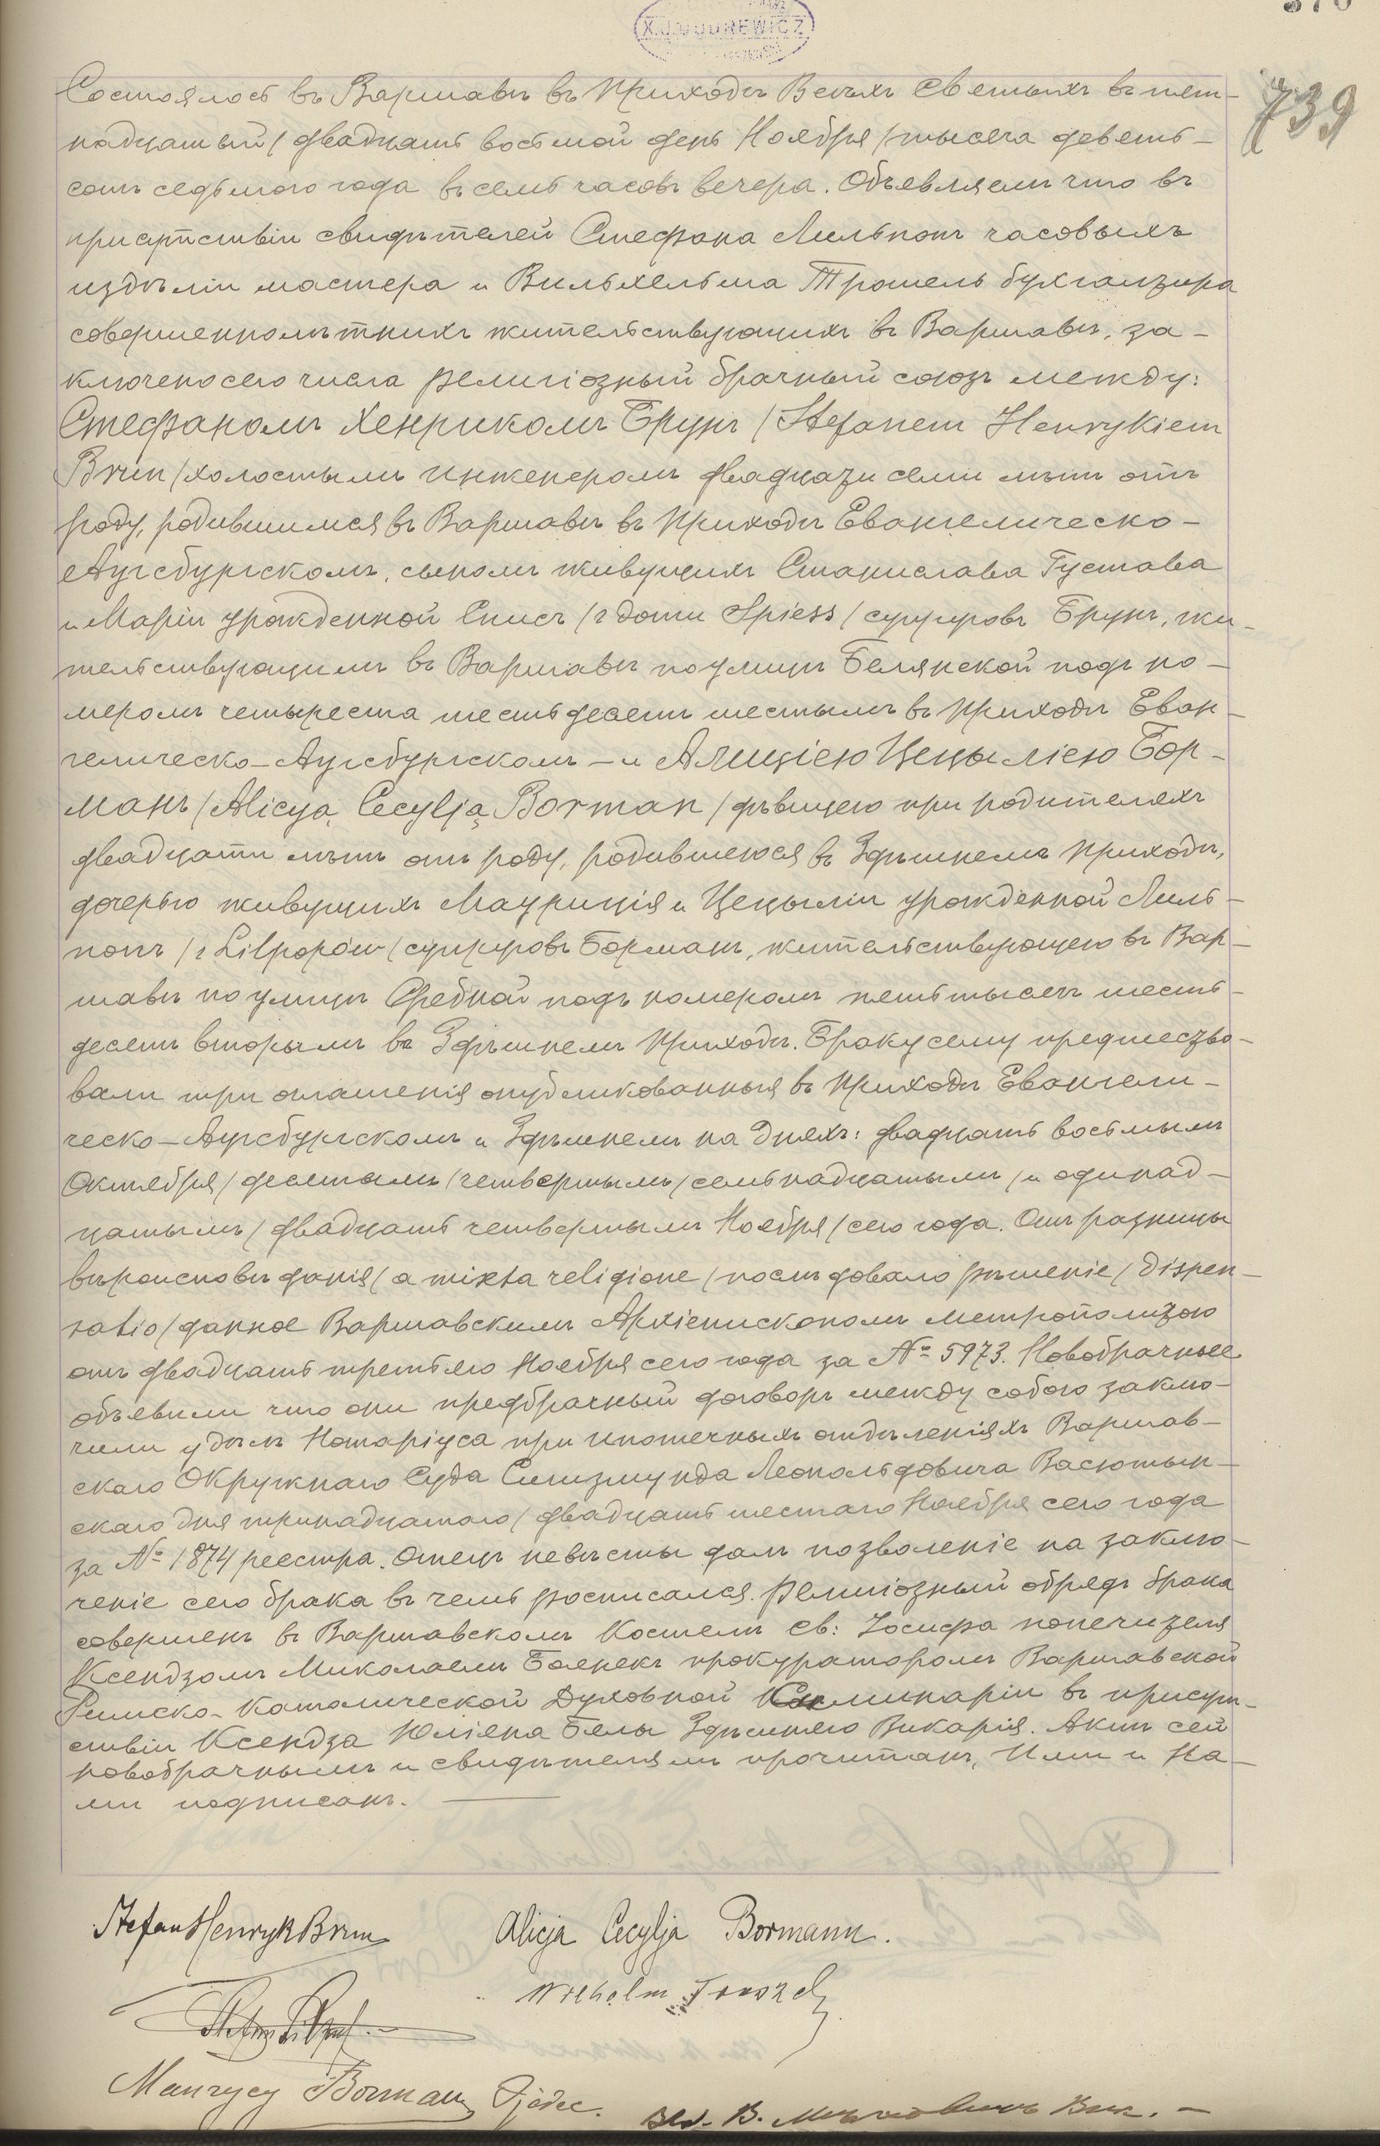 X.J.DUDREWICZ
739
Состоялось въ Варшавѣ въ Приходѣ Всѣхъ Святыхъ въ пят-
надцатый/двадцать восьмой день Ноября/тысяча девять-
сотъ седьмого года въ семь часовъ вечера. Объявляемъ что въ
присутствіи свидѣтелей Стефана Лильпопъ часовыхъ
издѣлій мастера и Вильхельма Трошель бухгалтера
совершеннолѣтнихъ жительствующихъ въ Варшавѣ, за-
ключено сего числа религіозный брачный союзъ между:
Стефаномъ Хенрикомъ Брунъ / Stefanem Henrykiem
Brun / холостымъ инженеромъ двадцати семи лѣтъ отъ
роду, родившимся въ Варшавѣ въ Приходѣ Евангелическо-
Аугсбургскомъ, сыномъ живущихъ Станислава Густава
и Маріи урожденной Списъ / z domu Spiess / супруговъ Брунъ, жи-
тельствующимъ въ Варшавѣ по улицѣ Белянской подъ но-
меромъ четыреста шестьдесятъ шестымъ въ Приходѣ Еван-
гелическо-Аугсбургскомъ - и Алиціею Цецыліею Бор-
манъ / Alicyą Cecylją Borman / дѣвицею при родителяхъ
двадцати лѣтъ отъ роду, родившеюся въ Здѣшнемъ Приходѣ,
дочерью живущихъ Маурыція и Цецыліи урожденной Лиль-
попъ / z Lilpopów / супруговъ Борманъ, жительствующею въ Вар-
шавѣ по улицѣ Сребной подъ номеромъ пять тысячъ шесть-
десятъ вторымъ въ Здѣшнемъ Приходѣ. Браку сему предшество-
вали три оглашенія опубликованныя въ Приходѣ Евангели-
ческо-Аугсбургскомъ и Здѣшнемъ на дняхъ: двадцать восьмымъ
Октября / десятымъ / четвертымъ / семьнадцатымъ / и одинад-
цатымъ / двадцать четвертымъ Ноября / сего года. Отъ разницы
вѣроисповѣданія / a mixta religione / послѣдовало рѣшеніе / dispen-
satio / данное Варшавскимъ Архіепископомъ метрополитою
отъ двадцать третьяго Ноября сего года за № 5973. Новобрачные
объявили что они предбрачный договоръ между собою заклю-
чили у дѣлъ Нотаріуса при ипотечныхъ отдѣленіяхъ Варшав-
скаго Окружнаго Суда Сигизмунда Леопольдовича Васютын-
скаго дня тринадцатого / двадцать шестаго Ноября сего года
за № 1874 реестра. Отецъ невѣсты далъ позволеніе на заклю-
ченіе сего брака въ чемъ росписался. Религіозный обрядъ брака
совершенъ въ Варшавскомъ Костелѣ Св: Іосифа попечителя
Ксендзомъ Миколаемъ Боянекъ прокураторомъ Варшавской
Римско-Католической Духовной Семинаріи въ присут-
ствіи Ксендза Юліана Бялы Здѣшняго Викарія. Актъ сей
новобрачнымъ и свидѣтелямъ прочитанъ, Ими и На-
ми подписанъ.
Stefan Henryk Brun
Alicja Cecylja Bormann.
Wilhelm Troszel
Maurycy Borman Ojciec.